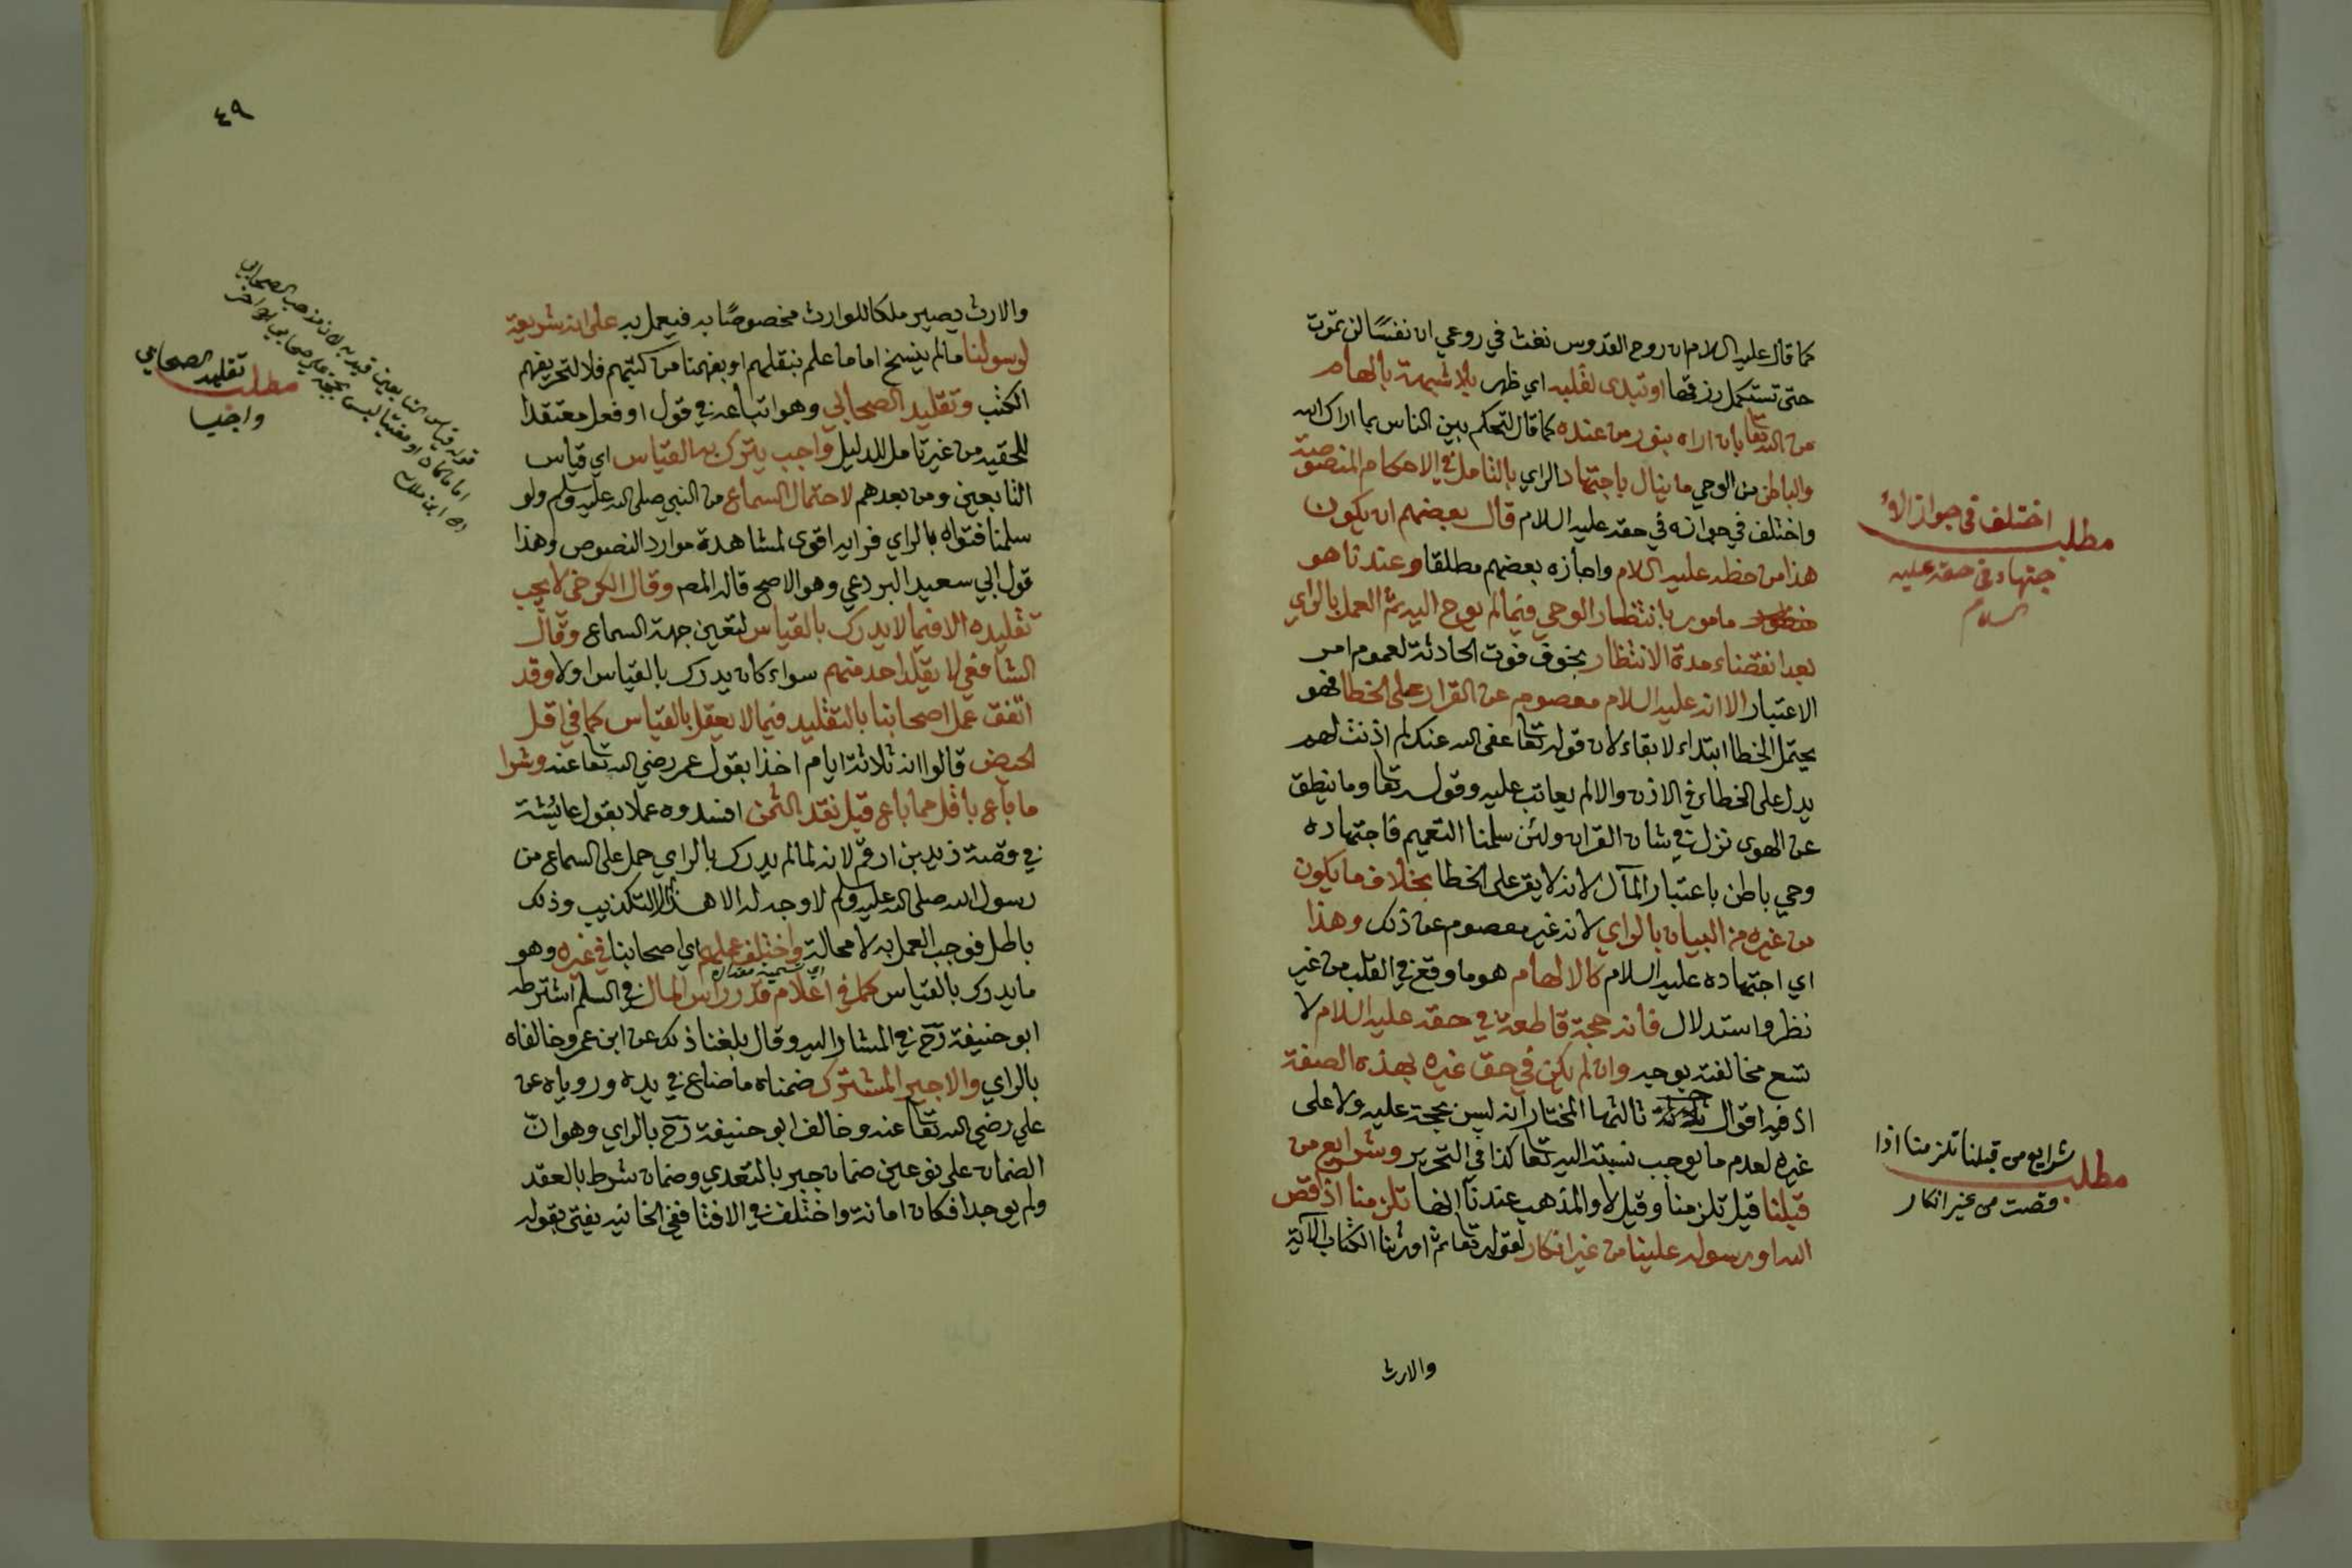 كما قال عليه السلام ان روح القدوس نفث في روعي ان نفسًا لن تموت
حتى تستكمل رزقها او تبدى لقلبه اي ظهر بلا شبهة بالهام
من الله تعا بان اراه بنور من عنده كما قال لتحكم بين الناس بما اراك الله
والباطن من الوحي ما ينال باجتهاد الراي بالتامل في الاحكام المنصوصة
واختلف في جوازه في حقه عليه السلام قال بعضهم ان يكون
هذا من حظه عليه السلام واجازه بعضهم مطلقا وعندنا هو
مامور بانتظار الوحي فيما لم يوح اليه ثم العمل بالراي
بعد انقضاء مدة الانتظار بخوف فوت الحادثة لعموم امر
الاعتبار الا انه عليه السلام معصوم عن القرار على الخطا فهو
يحتمل الخطا ابتداء لا بقاء لان قوله تعا عفى الله عنك لم اذنت لهم
يدل على الخطاء في الاذن والا لم يعاتب عليه وقوله تعا وما ينطق
عن الهوى نزل في شان القران ولئن سلمنا التعميم فاجتهاده
وحي باطن باعتبار المآل لانه لا يقر على الخطا بخلاف ما يكون
من غيره من البيان بالراي لانه غير معصوم عن ذلك وهذا
اي اجتهاده عليه السلام كالالهام هو ما وقع في القلب من غير
نظر واستدلال فانه حجة قاطعة في حقه عليه السلام لا
تسع مخالفته بوجه وان لم يكن في حق غيره بهذه الصفة
اذ فيه اقوال ثلاثة ثالثها المختار انه ليس بحجة عليه ولا على
غيره لعدم ما يوجب نسبته اليه تعا كذا في التحرير وشرايع من
قبلنا قيل تلزمنا وقيل لا والمذهب عندنا انها تلزمنا اذ قص
الله او رسوله علينا من غير انكار لقوله تعا ثم اورثنا الكتاب الآية
والارث
مطلب اختلف في جواز الا
جتهاد في حقه عليه
السلام
مطلب شرايع من قبلنا تلزمنا اذا
قصت من غير انكار
٤٩
والارث يصير ملكا للوارث مخصوصًا به فيعمل به على انه شريعة
لرسولنا ما لم ينسخ اما ما علم بنقلهم او بفهمنا من كتبهم فلا لتحريفهم
الكتب وتقليد الصحابي وهو اتباعه في قول او فعل معتقدا
للحقيه من غير تامل للدليل واجب يترك به القياس اي قياس
التابعين ومن بعدهم لاحتمال السماع من النبي صلى الله عليه وسلم ولو
سلمنا فتواه بالراي فرايه اقوى لمشاهدة موارد النصوص وهذا
قول ابي سعيد البردعي وهو الاصح قاله المص وقال الكرخي لا يجب
تقليده الا فيما لا يدرك بالقياس لتعين جهة السماع وقال
الشافعي لا يقلد احد منهم سواء كان يدرك بالقياس اولا وقد
اتفق عمل اصحابنا بالتقليد فيما لا يعقل بالقياس كما في اقل
الحيض قالوا انه ثلاثة ايام اخذا بقول عمر رضي الله تعا عنه وشرا
ما باع باقل مما باع قبل نقد الثمن افسدوه عملا بقول عايشة
في قصة زيد بن ارقم لانه لما لم يدرك بالراي حمل على السماع من
رسول الله صلى الله عليه وسلم لا وجه له الا هذا الا التكذيب وذلك
باطل فوجب العمل به لا محالة واختلف عملهم اي اصحابنا في غيره وهو
اي تسمية مقداره
ما يدرك بالقياس كما في اعلام قدر راس المال في السلم اشترطه
ابو حنيفة رح في المشار اليه وقال بلغنا ذلك عن ابن عمر وخالفاه
بالراي والاجير المشترك ضمناه ما ضاع في يده وروياه عن
علي رضي الله تعا عنه وخالف ابو حنيفة رح بالراي وهو ان
الضمان على نوعين ضمان جبر بالتعدي وضمان شرط بالعقد
ولم يوجدا فكان امانة واختلف في الافتا ففي الخانيه يفتى بقوله
مطلب تقليد الصحابي
واجب
قوله قياس التابعين قيد به لان مذهب الصحابي
اماما كان او مفتيا ليس بحجة على صحابي اخر
اه ابن ملك